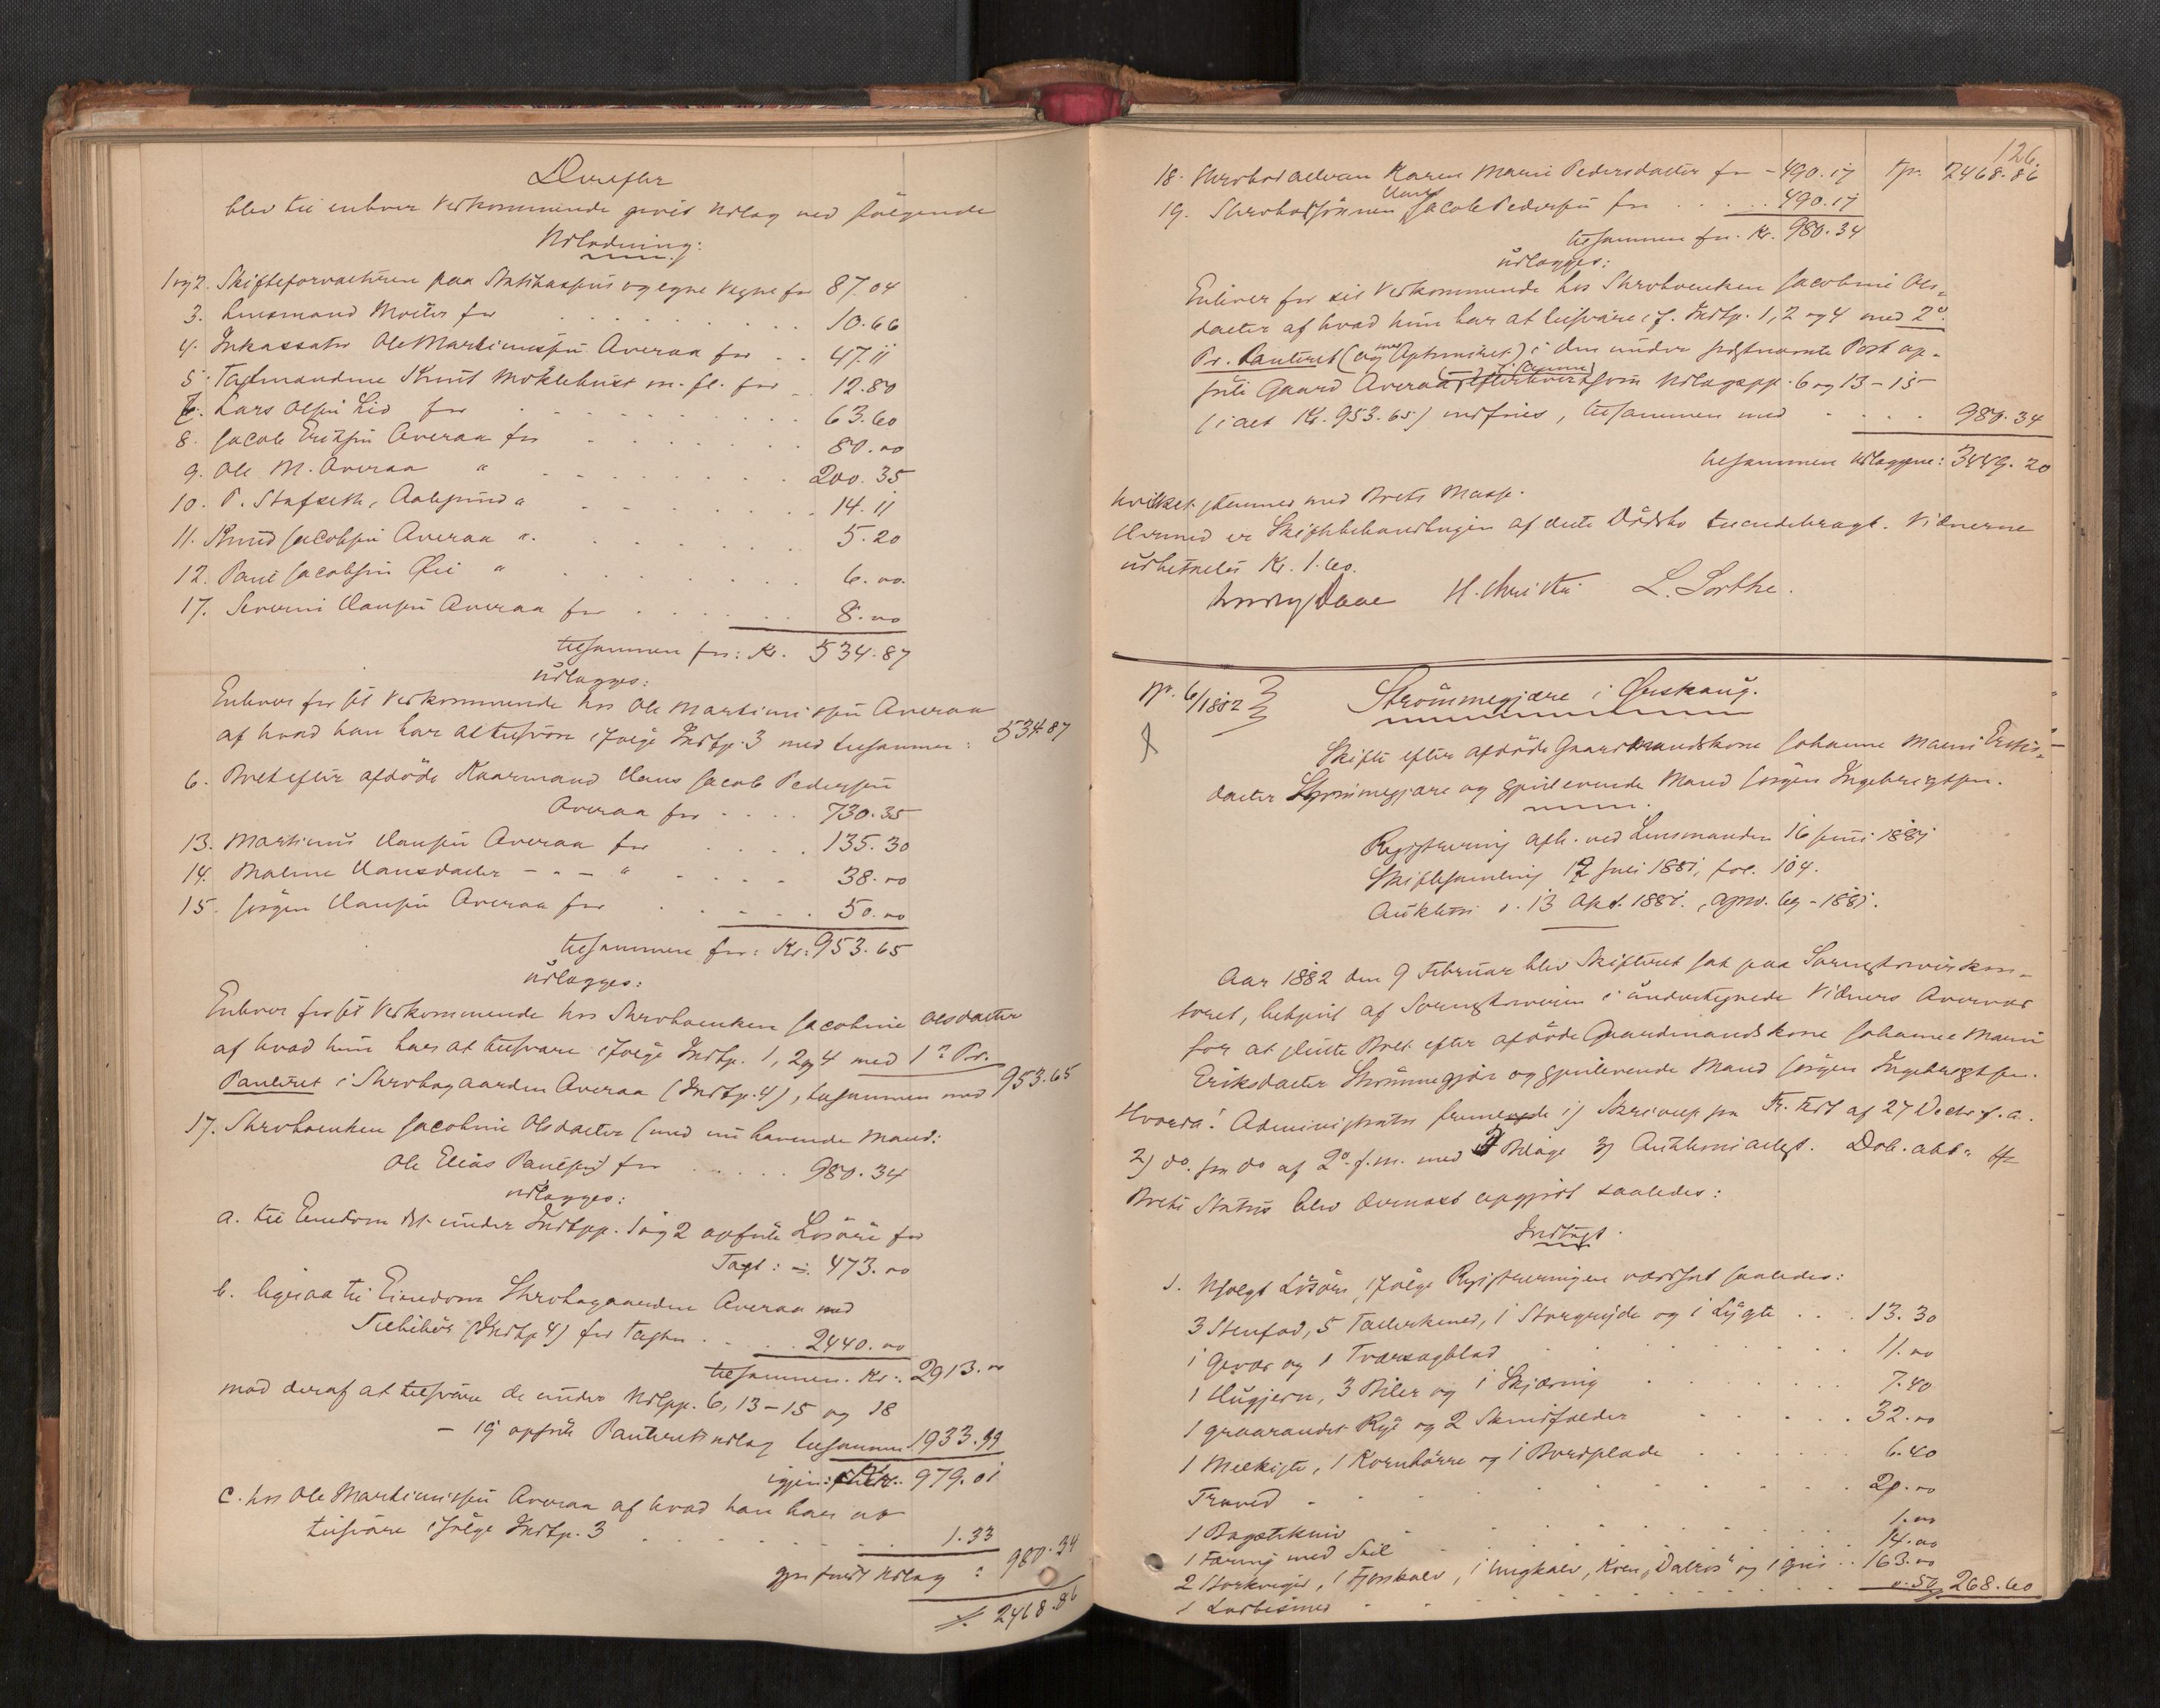 Derefter
blev til enhver Vedkommende gjort Udlæg ved følgende
Udlodning:
1 og 2. Skifteforvalteren paa Statskassens og egne Vegne for 87.04
3. Lensmand Moltu for 10.66
4. Inkassator Ole Martinussen Overaa for 47.11
5. Taxtmændene Knut Moklebust m. fl. for 12.80
7. Lars Olsen Lid for 63.60
8. Jacob Eriksen Overaa for 80.00
9. Ole M. Overaa " 200.35
10. P. Stafseth, Aalesund " 14.11
11. Knud Jacobsen Overaa " 5.20
12. Paul Jacobsen Øie " 6.00
17. Severin Hansen Overaa for 8.00
tilsammen for: Kr. 534.87
udlægges:
Enhver for sit Vedkommende hos Ole Martinussen Overaa
af hvad han har at tilsvare ifølge Indtp. 3 med tilsammen: 534 87
6. Boet efter afdøde Kaarmand Hans Jacob Pedersen
Overaa for 730.35
13. Martinus Hansen Overaa for 135.30
14. Malene Hansdatter - " - " 38.00
15. Jørgen Hansen Overaa for 50.00
tilsammen for: Kr. 953.65
udlægges:
Enhver for sit Vedkommende hos Strvboenken Jacobine Olsdatter
af hvad hun har at tilsvare ifølge Indtp. 1, 2 og 4 med 1ste Pr.
Panteret i Strvbogaarden Overaa (Indtp. 4), tilsammen med 953.65
17. Strvboenken Jacobine Olsdatter (med nu havende Mand:
Ole Elias Paulsen) for 980.34
udlægges:
a. til Eiendom det under Indtpp. 1 og 2 opførte Løsøre for
Taxt: 473.00
b. ligesaa til Eiendom Strvbogaarden Overaa med
Tilbehør (Indtp 4) for Taxten 2440.00
tilsammen Kr: 2913.00
mod deraf at tilsvare de under Udlpp. 6, 13-15 og 18
- 19 opførte Panteretsudlæg tilsammen 1933.99
igjen: Kr. 979.01
c. hos Ole Martinussen Overaa af hvad han har at
tilsvare ifølge Indtp. 3 1.33
gjør fuldt Udlæg: 980.34
2468.86
126.
18. Karen Marie Pedersdatter for - 490.17 Tr. 2468.86
19. Hans Jacob Pedersen for 490.17
tilsammen for Kr. 980.34
udlægges:
Enhver for sit Vedkommende hos Jacobine Ols-
datter af hvad hun har at tilsvare if. Indtp. 1, 2 og 4 med 2d
Pr. Panteret i den under sidstnævnte Post op-
førte Gaard Overaa som Udlægspp. 6 og 13-15
(ialt Kr. 953.65) indfries, tilsammen med 980.34
tilsammen Udlæggene: 3449.20
hvilket stemmer med Boets Masse.
Hermed er Skiftebehandlingen af dette Dødsbo tilendebragt. Vidnerne
udbetaltes Kr. 1.60.
Daae H. Christie L. Sorthe.
No. 6/1882
Strømmegjære i Ørskoug.
Skifte efter afdøde Gaardmandskone Johanne Marie Eriks-
datter Strømmegjære og gjenlevende Mand Jørgen Ingebrigtsen.
Registrering afh. ved Lensmanden 16 Juni 1881
Skiftesamling 17 Juli 1881, fol. 104.
Auktion d. 13 Okt. 1881.
Aar 1882 den 9 Februar blev Skifteret sat paa Sorenskriverkon-
toret, betjent af Sorenskriveren i undertegnede Vidners Overvær
for at slutte Boet efter afdøde Gaardmandskone Johanne Marie
Eriksdatter Strømmegjære og gjenlevende Mand Jørgen Ingebrigtsen.
Hvorda: Administrator fremlagde 1) Skrivelse fra af 27 Decbr f. a.
2) do. fra do af 2d. f. m. med 2 Bilage 3) Auktionsudgt.
Boets Status blev dernæst opgjort saaledes:
Indtægt.
1. Usolgt Løsøre, ifølge Registreringen værdsat saaledes:
3 Stenfad, 5 Tallerkener, 1 Storgryde og 1 Lygte 13.30
1 Gevær og 1 Tværsagblad 11.00
1 Hugjern, 3 Biler og 1 Skjæring 7.40
1 graarandet Rye og 2 Skindfælder 32.00
1 Melkiste, 1 Kornbørre og 1 Bordplade 6.40
Træved 20.00
1 1.00
1 Færing med Seil 14.00
2 Storkviger, 1 Fjorskalv, 1 Ungkalv, Koen "Dalros" og 1 Gris 163.00
1 Lodbismer 0.50 268.60